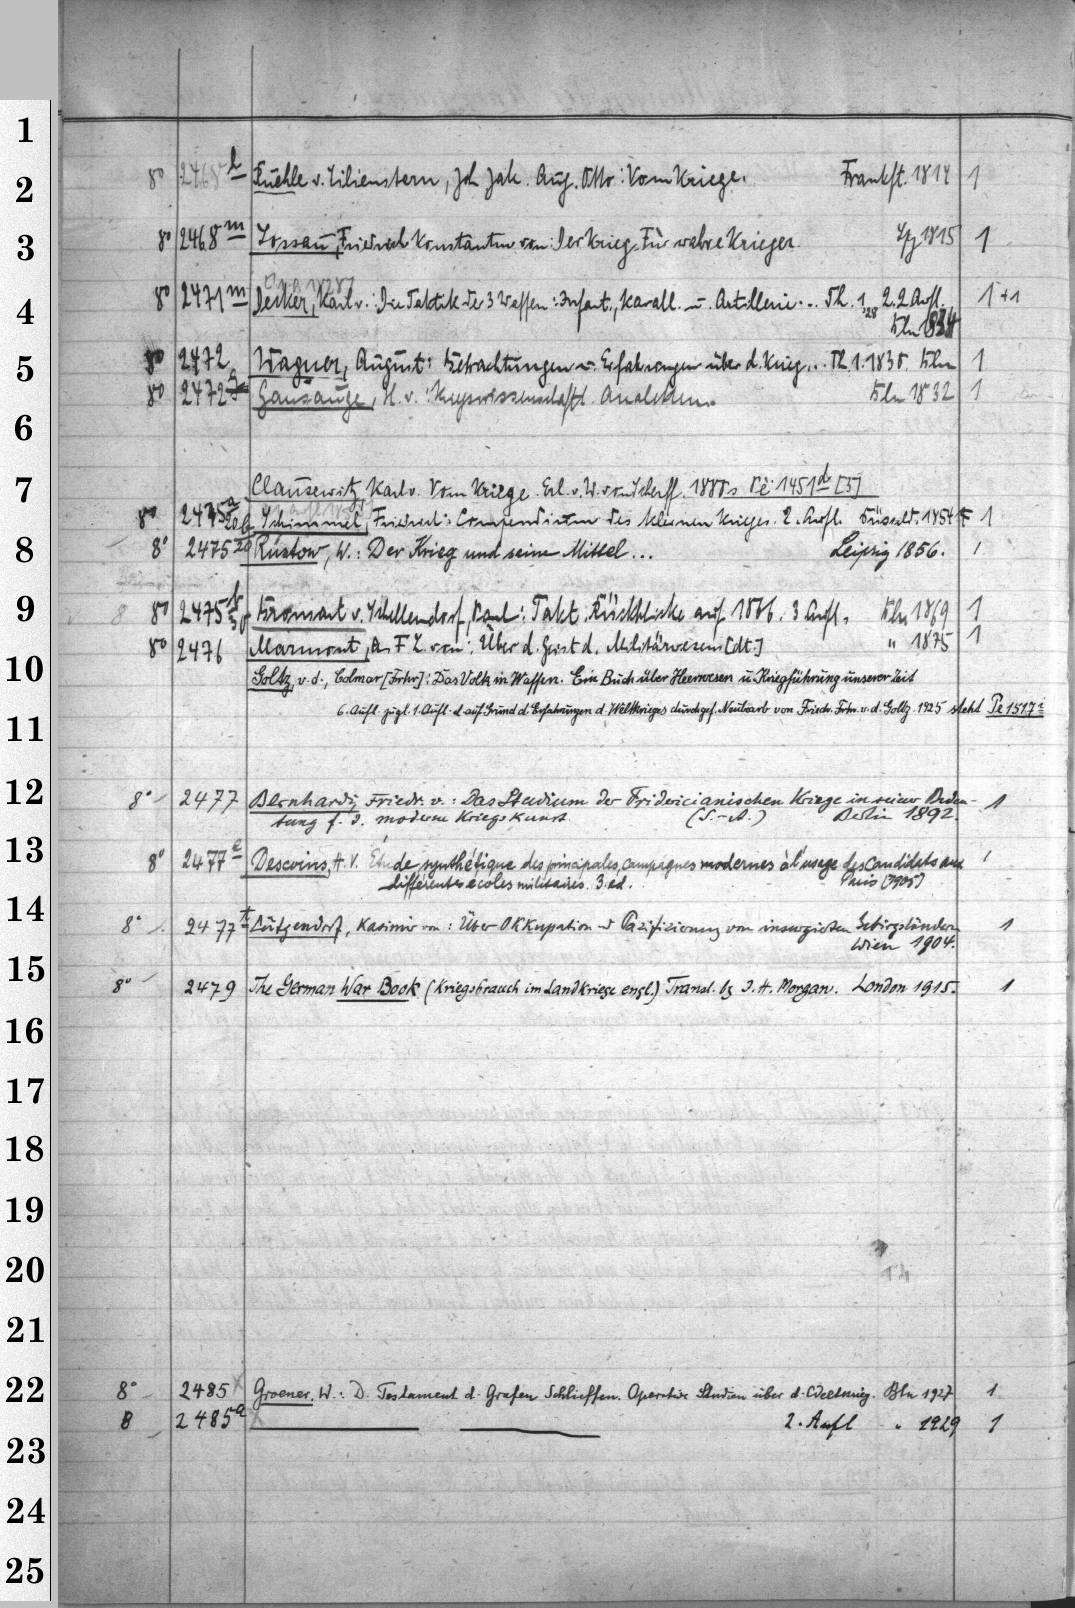 1
2
8° 2468 l Ruehle v. Lilienstern, Joh Jak. Aug. Otto: Vom Kriege. Frankft. 1814 1
3
8° 2468 m Lossau, Friedrich Konstantin von: Der Krieg. Für wahre Krieger. Lpz 1815 1
4
8° 2471 m Decker, Karl v.: Die Taktik der 3 Waffen: Infant., Kavall. u. Artillerie... Th. 1, 2. 2 Aufl. 1+1
28 Bln 1834
5
8° 2472 Wagner, August: Betrachtungen u. Erfahrungen über d. Krieg... Th 1. 1830 Bln 1
8° 2472 Gansauge, H. v. Kriegswissenschaftl. Analekten. Bln 1832 1
6
7
Clausewitz, Karl v. Vom Kriege. Erl. v. W. von Scherff. 1880 s. Pe 1451 d [3]
8° 2475 a Schimmel, Friedrich: Compendium des kleinen Krieges. 2. Aufl. Düsseld. 1854 1
8
8° 2475 20 Rüstow, W.: Der Krieg und seine Mittel... Leipzig 1856. 1
9
8° 2475 b Bronsart v. Schellendorf, Paul: Takt. Rückblicke auf 1866. 3 Aufl. Bln 1869 1
8° 2476 Marmont, A. F. L. von: Über d. Geist d. Militärwesens [dt.] " 1875 1
10
Goltz, v. d., Colmar [Frhr]: Das Volk in Waffen. Ein Buch über Heerwesen u. Kriegführung unserer Zeit
6. Aufl. zugl. 1. Aufl. d. auf Grund d. Erfahrungen d. Weltkrieges durchgef. Neubearb von Friedr. Frhr. v. d. Goltz. 1925 steht Pe 1517 i
11
12
8° 2477 Bernhardi, Friedr. v.: Das Studium der Fridericianischen Kriege in seiner Bedeu- 1
tung f. d. moderne Kriegskunst (S.-A.) Berlin 1892.
13
8° 2477 e Descoins, H. V. Étude synthétique des principales campagnes modernes à l'usage des candidats aux 1
différentes écoles militaires. 3. ed. Paris [1905]
14
8° 2477 t Lütgendorf, Kasimir von: Über Okkupation u Pazifizierung von insurgierten Gebirgsländern 1
Wien 1904.
15
8° 2479 The German War Book (Kriegsbrauch im Landkriege engl.) Transl. by J. H. Morgan. London 1915. 1
16
17
18
19
20
21
22
8° 2485 Groener, W.: D. Testament d. Grafen Schlieffen. Operative Studien über d. Weltkrieg. Bln 1927 1
8 2485 a 2. Aufl " 1929 1
23
24
25